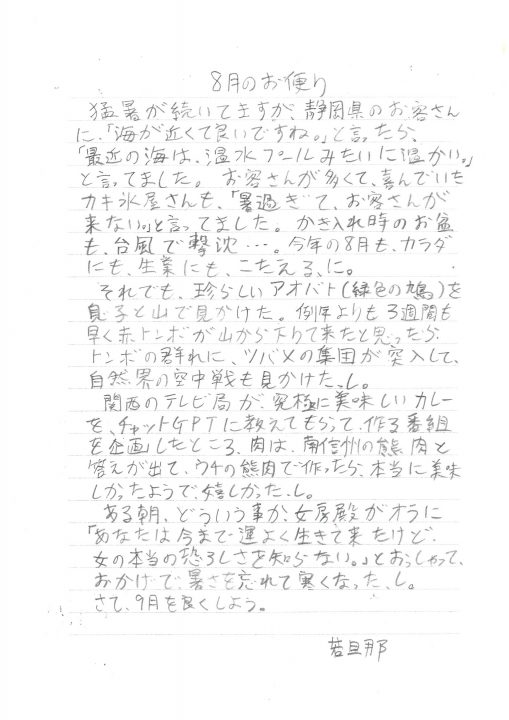 8月のお便り
猛暑が続いてますが、静岡県のお客さん
に、「海が近くて良いですね。」と言ったら、
「最近の海は、温水プールみたいに温かい。」
と言ってました。お客さんが多くて、喜んでいた
カキ氷屋さんも、「暑過ぎて、お客さんが
来ない。」と言ってました。かき入れ時のお盆
も、台風で撃沈…。今年の8月も、カラダ
にも、生業にも、こたえる、に。
それでも、珍らしいアオバト(緑色の鳩)を
息子と山で見かけた。例年よりも3週間も
早く赤トンボが山から下りて来たと思ったら、
トンボの群れに、ツバメの集団が突入して、
自然界の空中戦も見かけた、し。
関西のテレビ局が、究極に美味しいカレー
を、チャットGPTに教えてもらって、作る番組
を企画したところ、肉は、南信州の熊肉と
答えが出て、ウチの熊肉で作ったら、本当に美味
しかったようで、嬉しかった、し。
ある朝、どういう事か、女房殿がオラに
「あなたは今まで運よく生きて来たけど、
女の本当の恐ろしさを知らない。」とおっしゃって、
おかげで、暑さを忘れて寒くなった、し。
さて、9月を良くしよう。
若旦那